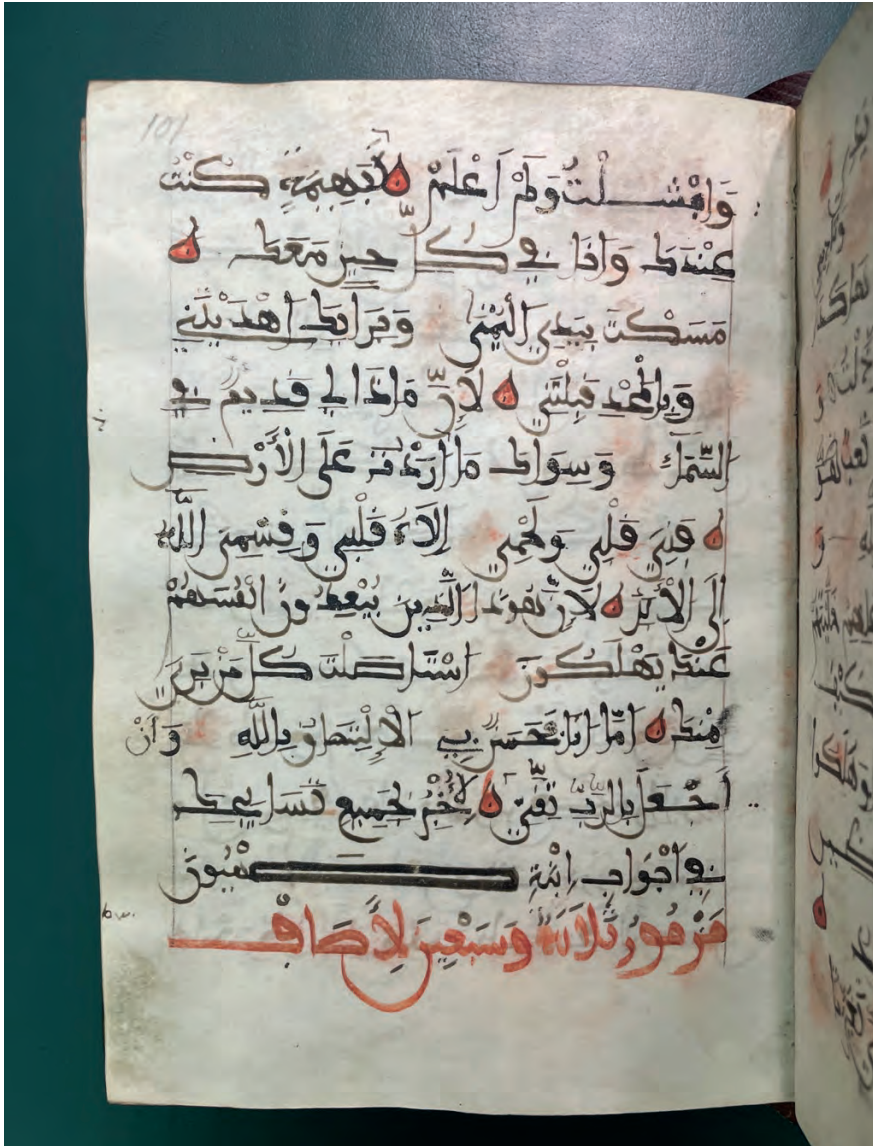 101
وَافشلتُ وَلم اَعْلَمْ كَبَهِيمَةٍ كنْتُ
عِنْدَكَ وَانَا في كُلّ حِينٍ مَعَكَ
مَسَكْتَ بِيَدِي الْيُمْنَى وَبرَايكَ اهْدَيْتَنِي
وَبِالْمَجْدِ قَبِلْتَنِي لِأَنّ مَاذَا لِي قديم في
السَّمَاءِ وَسِوَاكَ مَا أرَدْتُ عَلَى الْأَرْضِ
فَنِيَ قَلْبِي وَلَحْمِي إِلَاهُ قَلْبِي وَقِسْمِي اللَّه
إِلَى الْأَبَدِ لِأَنّ هوذا الَّذِين يُبْعِدُونَ انْفُسَهُمْ
عَنْكَ يَهْلَكُونَ اسْتَاصَلْتَ كُلَّ مَنْ يَزْنِي
مِنْكَ امَّا انَا فَحَسَنٌ بِي الِالْتِصَاقُ بِاللَّهِ وَأَنْ
أَجْعَلَ بِالرَّبِّ ثِقَتِي لِأُخْبِرَ بجَمِيعِ تَسَابِيحِكَ
في اجْوَابِ ابْنَةِ صهْيُونَ
مَزْمُورُ ثَلَاثَة وَسَبْعِينَ لِأَصَاف